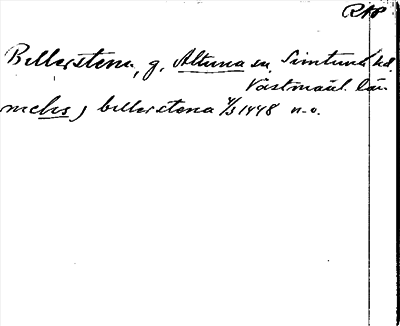 RAP
Bellerstena, g. Altuna sn. Simtuna hd.
Västmanl. län
mchs j bellerstena 4/3 1448 n-o.